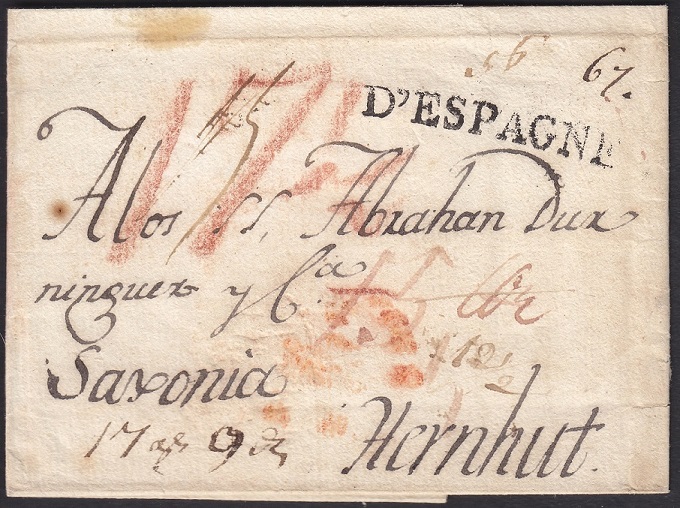 67.
D'ESPAGNE
Alos SS, Abrahan Dur
ninguer y Cª
Saxonia
Hernhut.